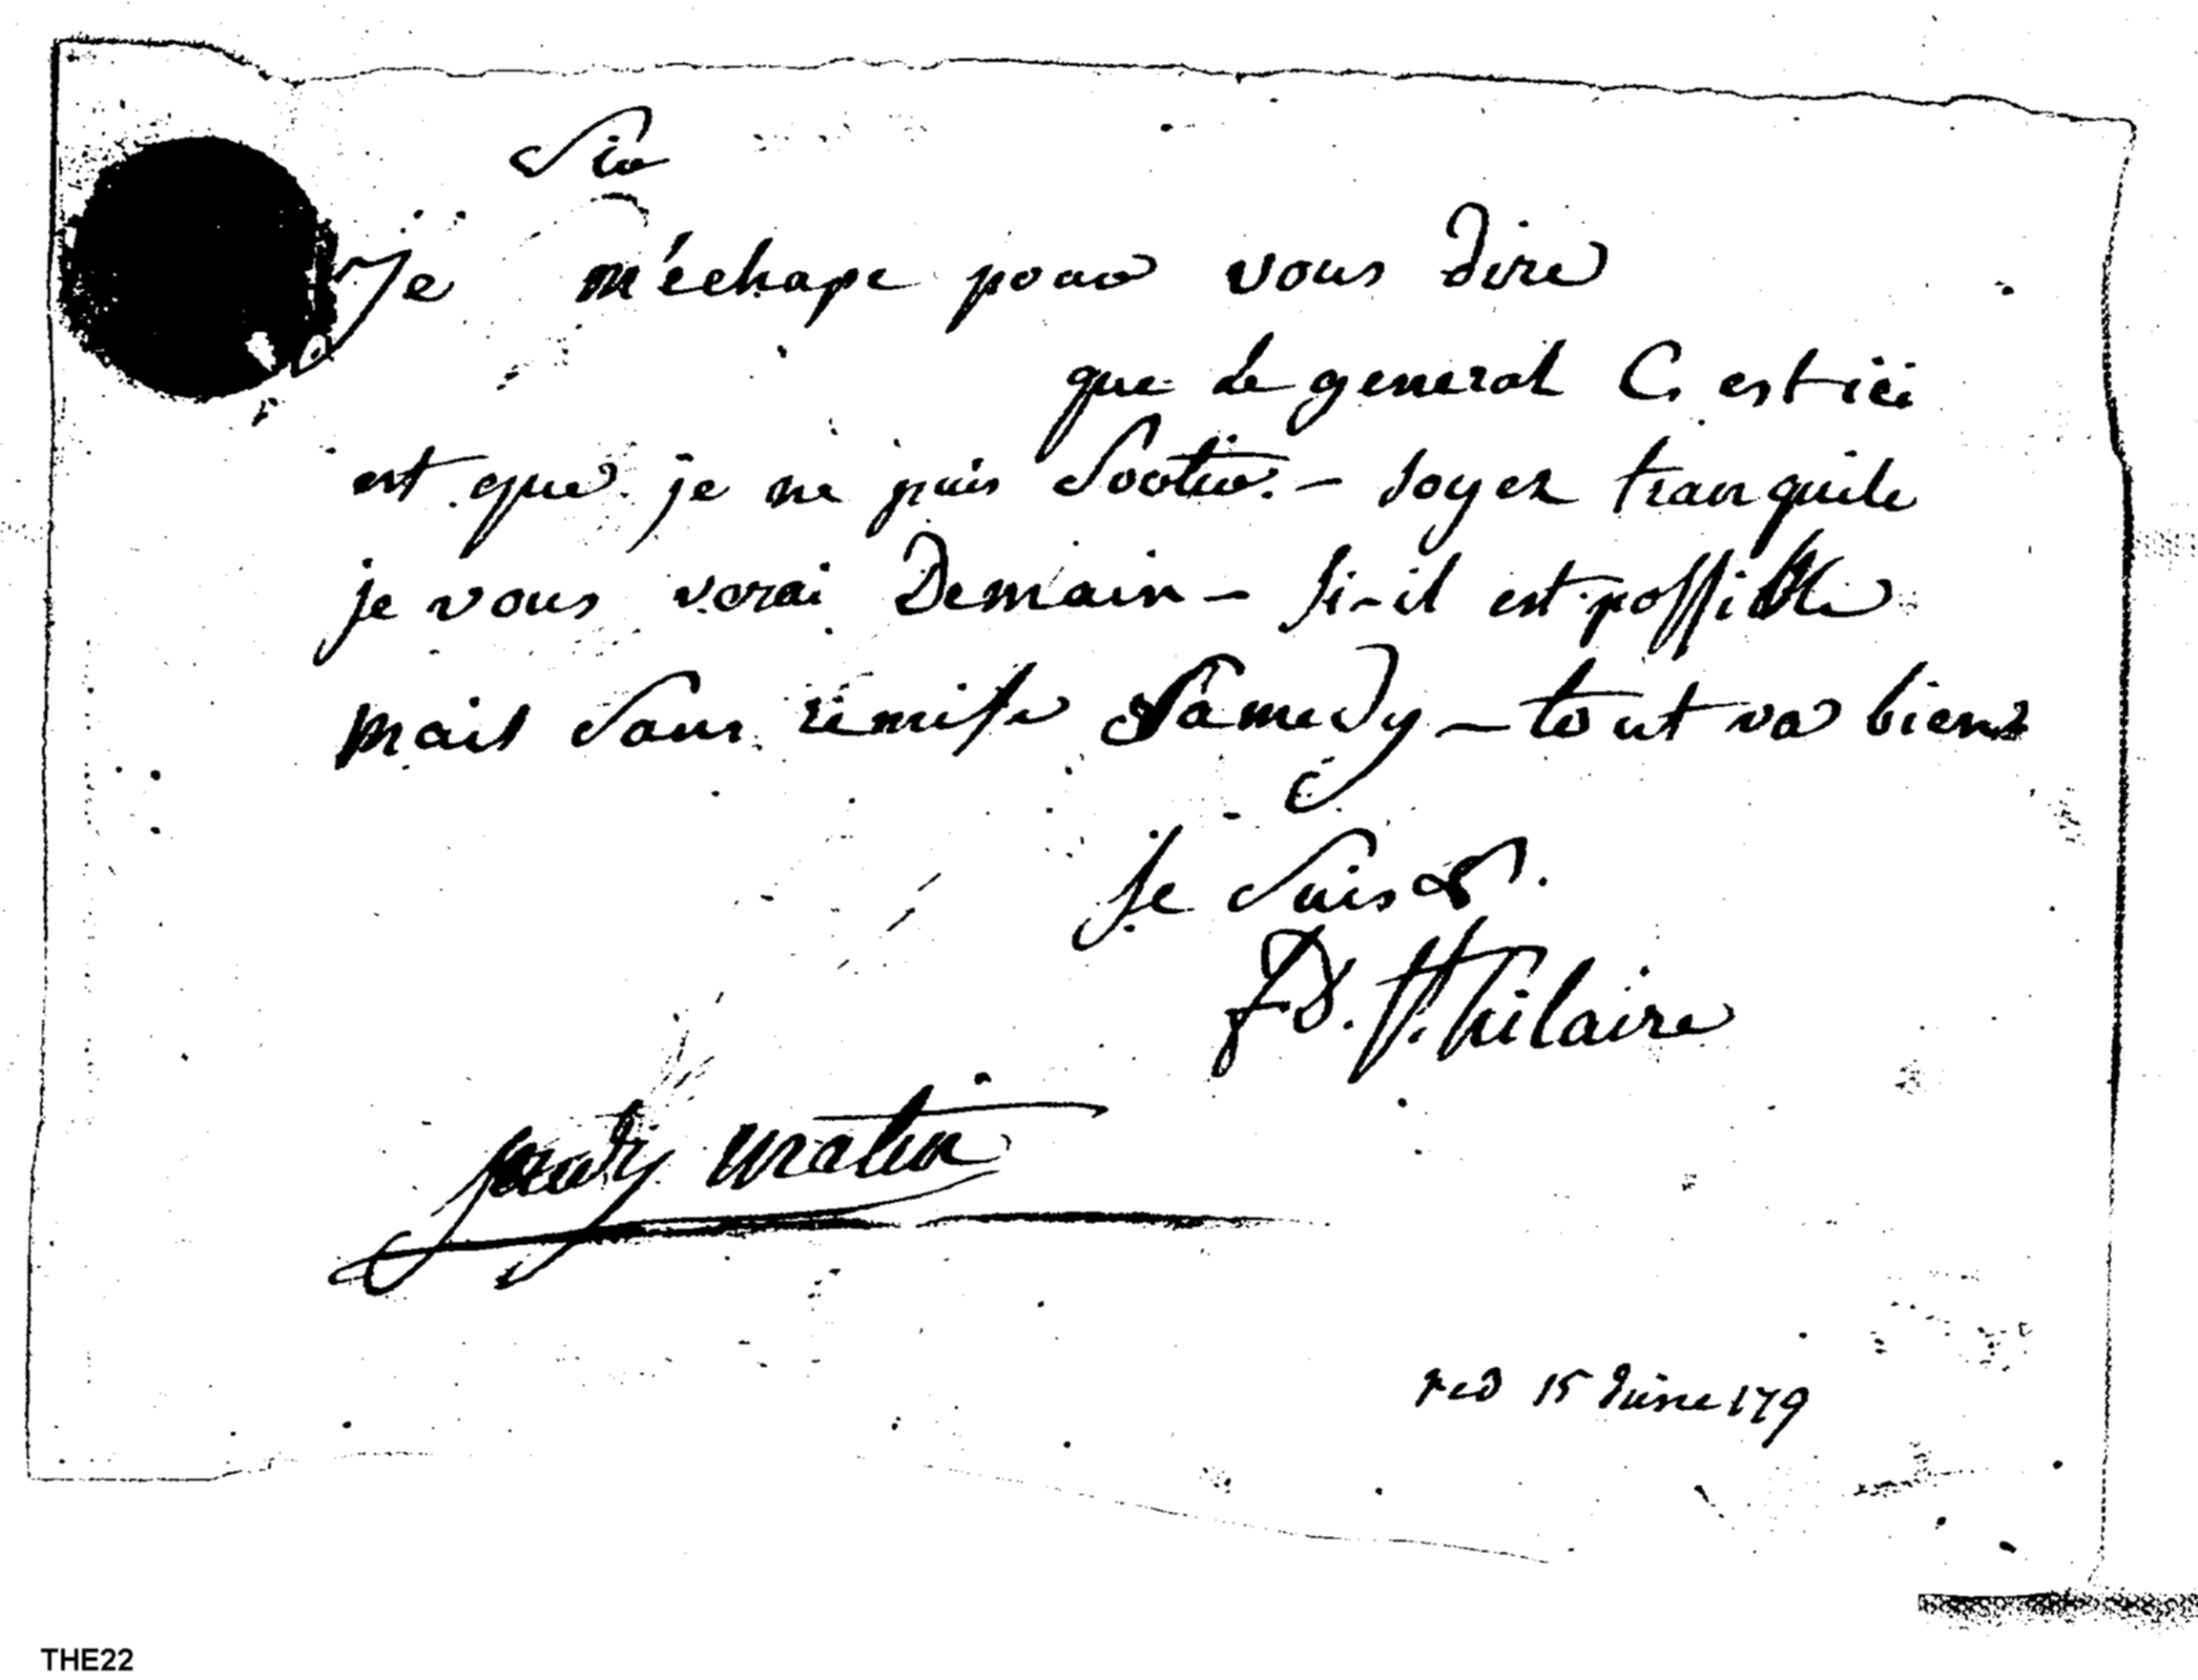 Sir
Je m'échape pour vous dire
que le general C. est ici
est que je ne puis Sortir. - Soyez tranquile
je vous verai Demain - Si-il est possible
mais Sans remise Samedy - tout va bien
je Suis &.
FD. St. hilaire
jeudy matin
red 15 June 179
THE22